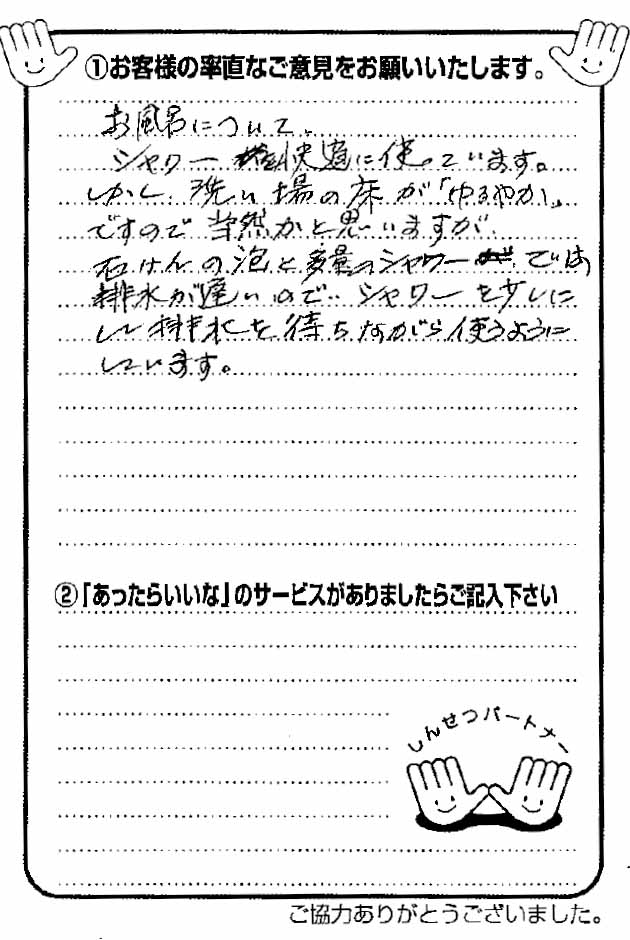 ①お客様の率直なご意見をお願いいたします。
お風呂について、
シャワー快適に使っています。
しかし、洗い場の床が「ゆるやか」
ですので当然かと思いますが
石けんの泡と多量のシャワーでは
排水が遅いので、シャワーを少しに
し排水を待ちながら使うように
しています。
②「あったらいいな」のサービスがありましたらご記入下さい
しんせつパートナー
ご協力ありがとうございました。